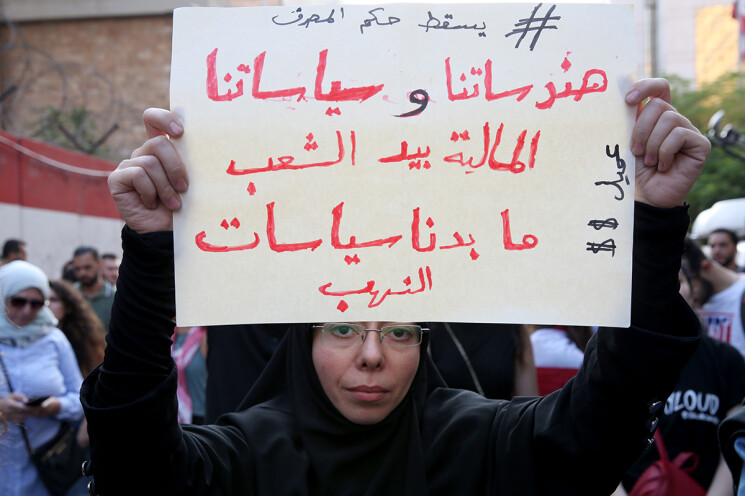 #يسقط حكم المصرف
هندرساتنا و سياساتنا
المالية بيد الشعب
ما بدنا سياسات
النهب
عميل $$
$$
LOUD